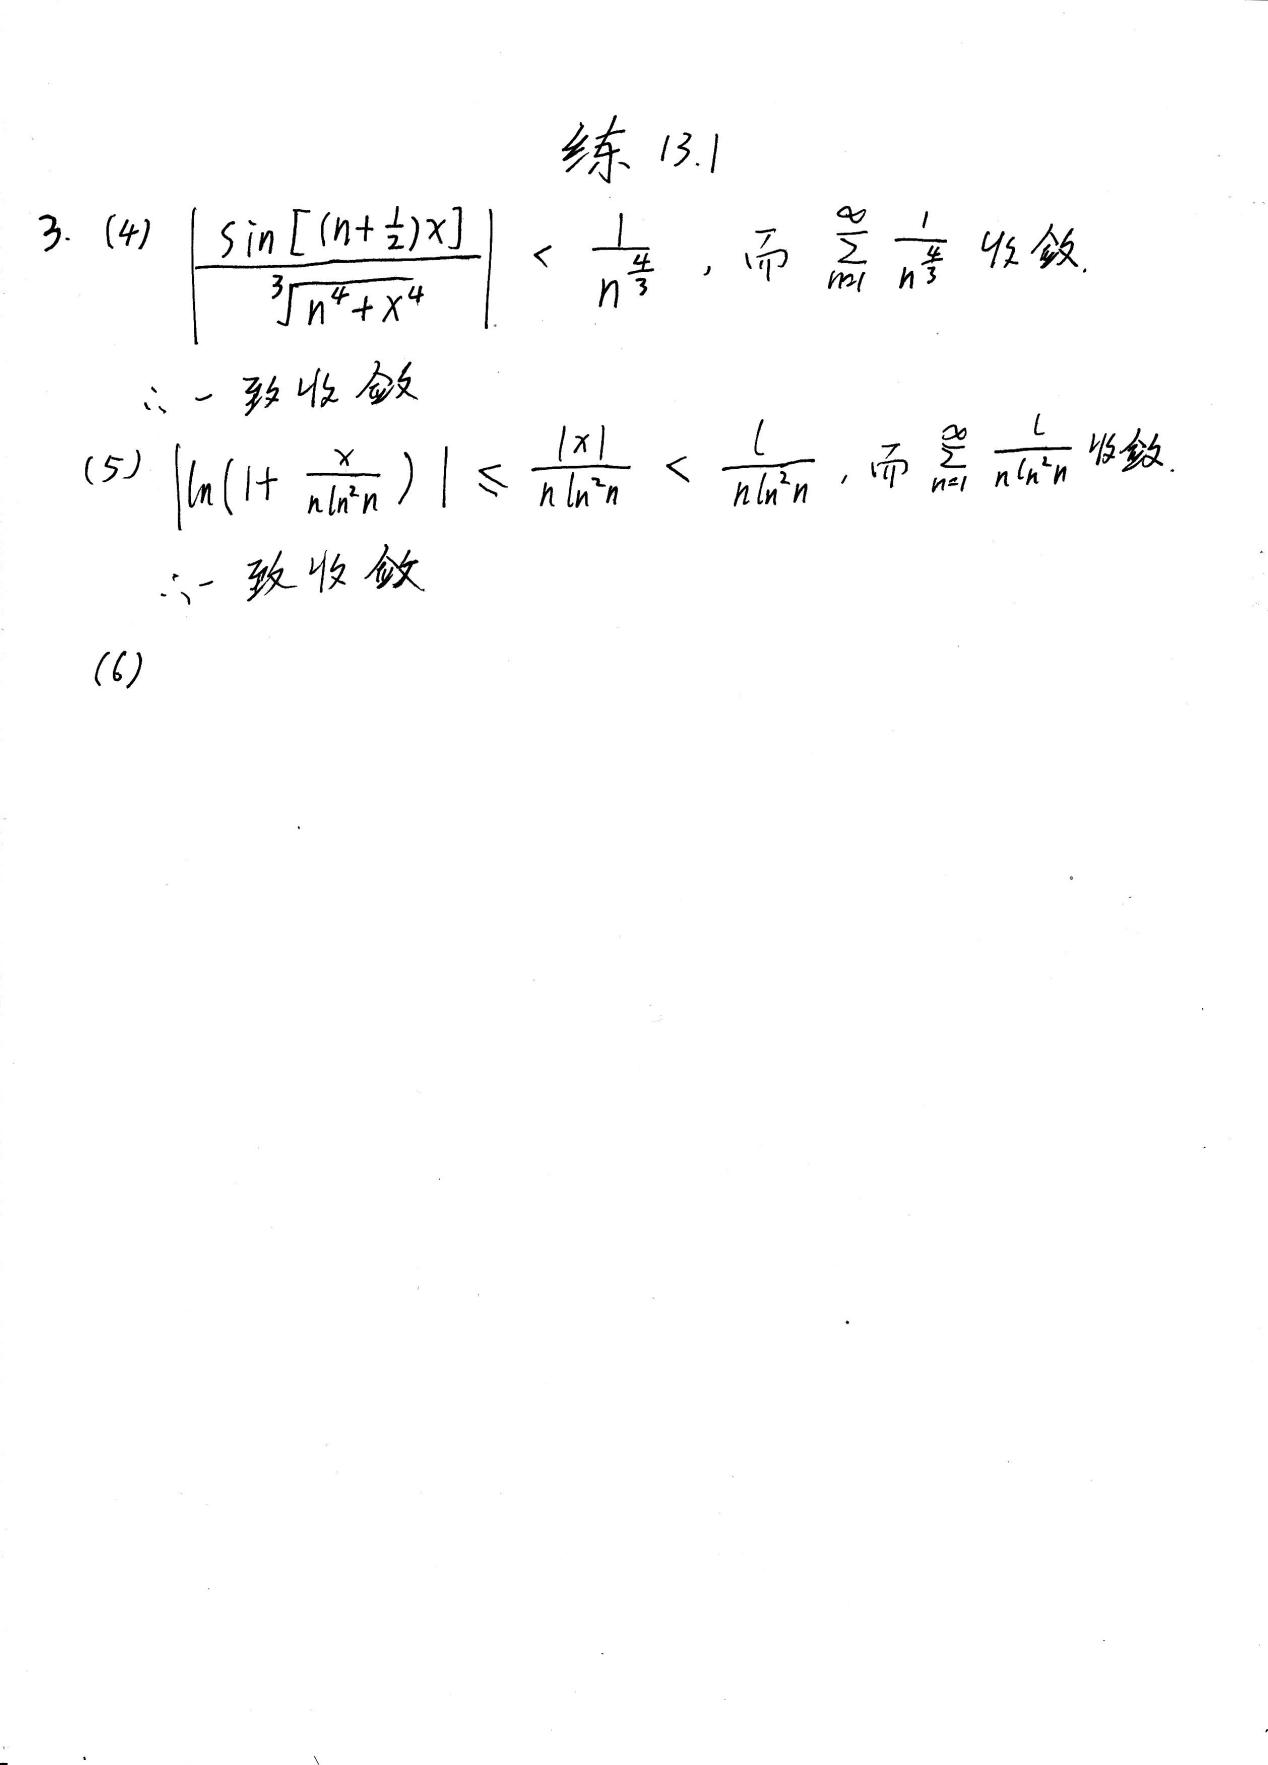 练 13.1
3. (4) |sin[(n+1/2)x] / ∛(n⁴+x⁴)| < 1/n^(4/3) , 而 ∑_{n=1}^{∞} 1/n^(4/3) 收敛.
∴ 一致收敛
(5) |ln(1+ x/(n ln²n))| ≤ |x|/(n ln²n) < l/(n ln²n) , 而 ∑_{n=1}^{∞} l/(n ln²n) 收敛.
∴ 一致收敛
(6)